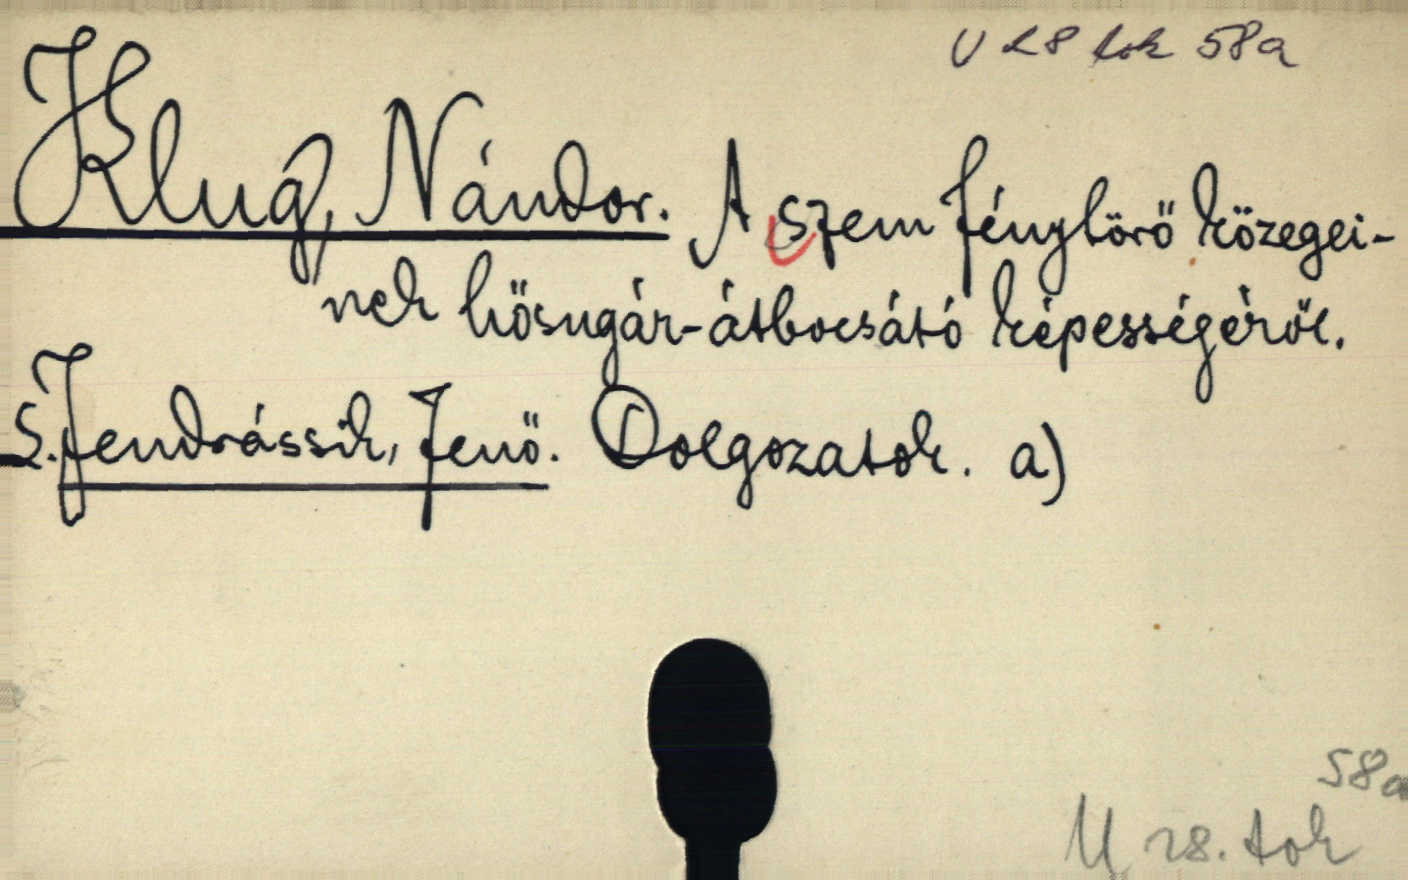 U 28 tok 58a
Klug, Nándor. A szem fénytörő közegei-
nek hősugár-átbocsátó képességéről.
S. Jendrássik, Jenő. Dolgozatok. a)
58a
U 28. tok